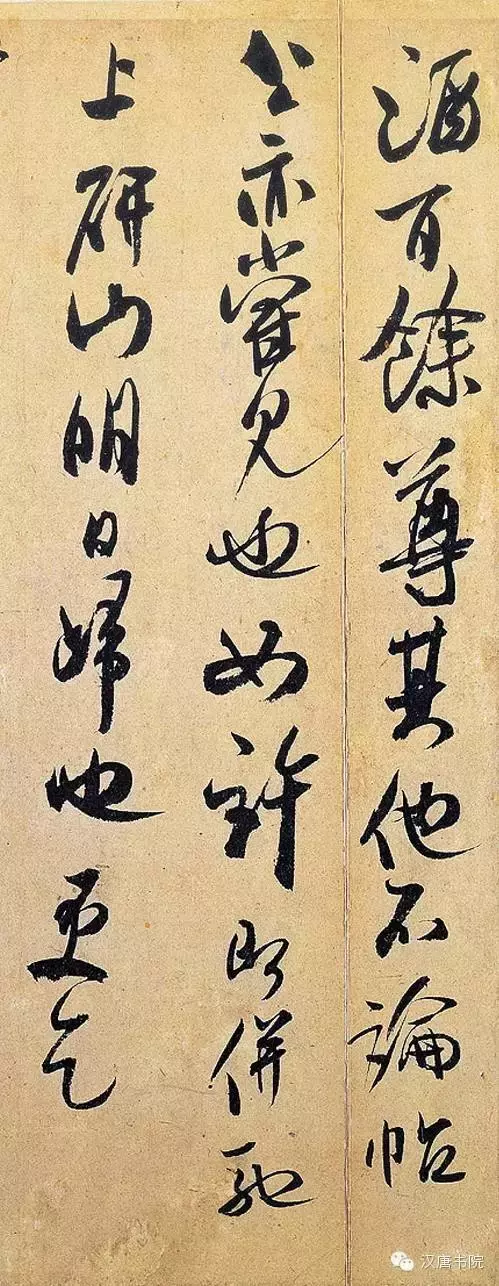 酒百餘尊其他不論帖
公亦嘗見也如許即併馳
上研山明日歸也更乞
汉唐书院